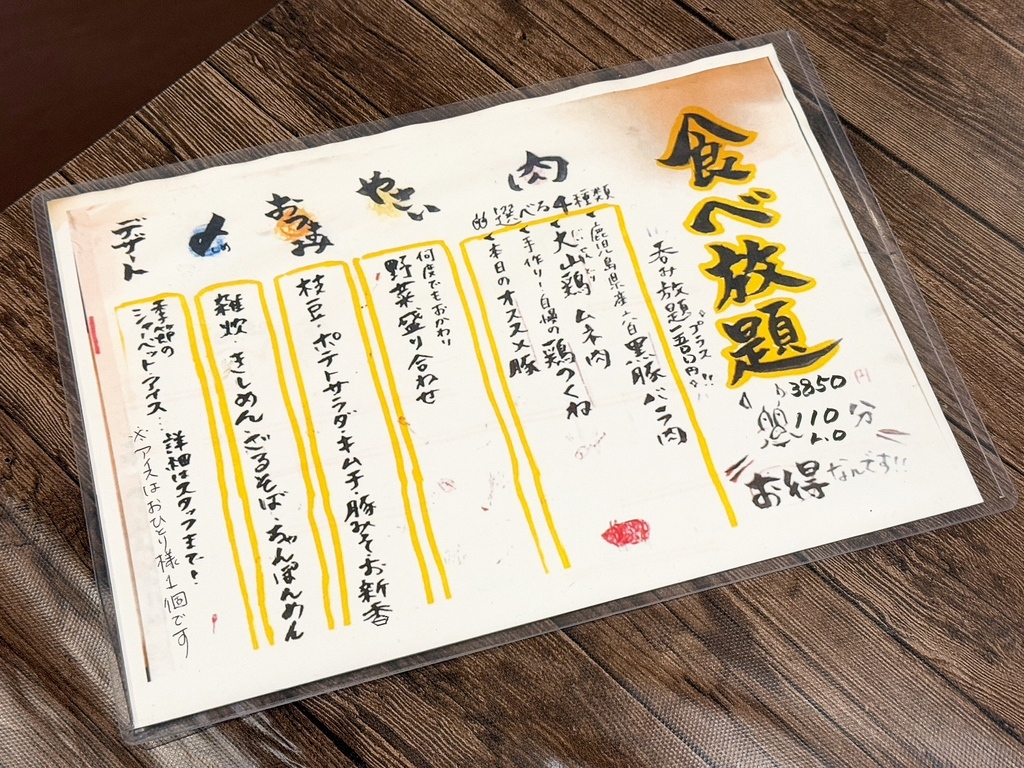 食べ放題
3850円
110分
L.O
お得なんです!!
呑み放題プラス
肉
選べる4種類
鹿児島県産六白黒豚バラ肉
大山鶏ムネ肉
手作り!自慢の鶏つくね
本日のオススメ豚
やさい
何度でもおかわり
野菜盛り合わせ
おつまみ
枝豆・ポテトサラダ・キムチ・豚みそ・お新香
〆
雑炊・きしめん・ざるそば・ちゃんぽんめん
デザート
季節の
シャーベット アイス…詳細はスタッフまで!
※アイスはおひとり様1個です